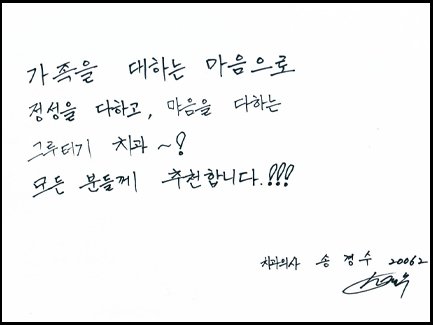 가족을 대하는 마음으로
정성을 다하고, 마음을 다하는
그루터기 치과~!
모든 분들께 추천합니다.!!!
치과의사 송경수 20062